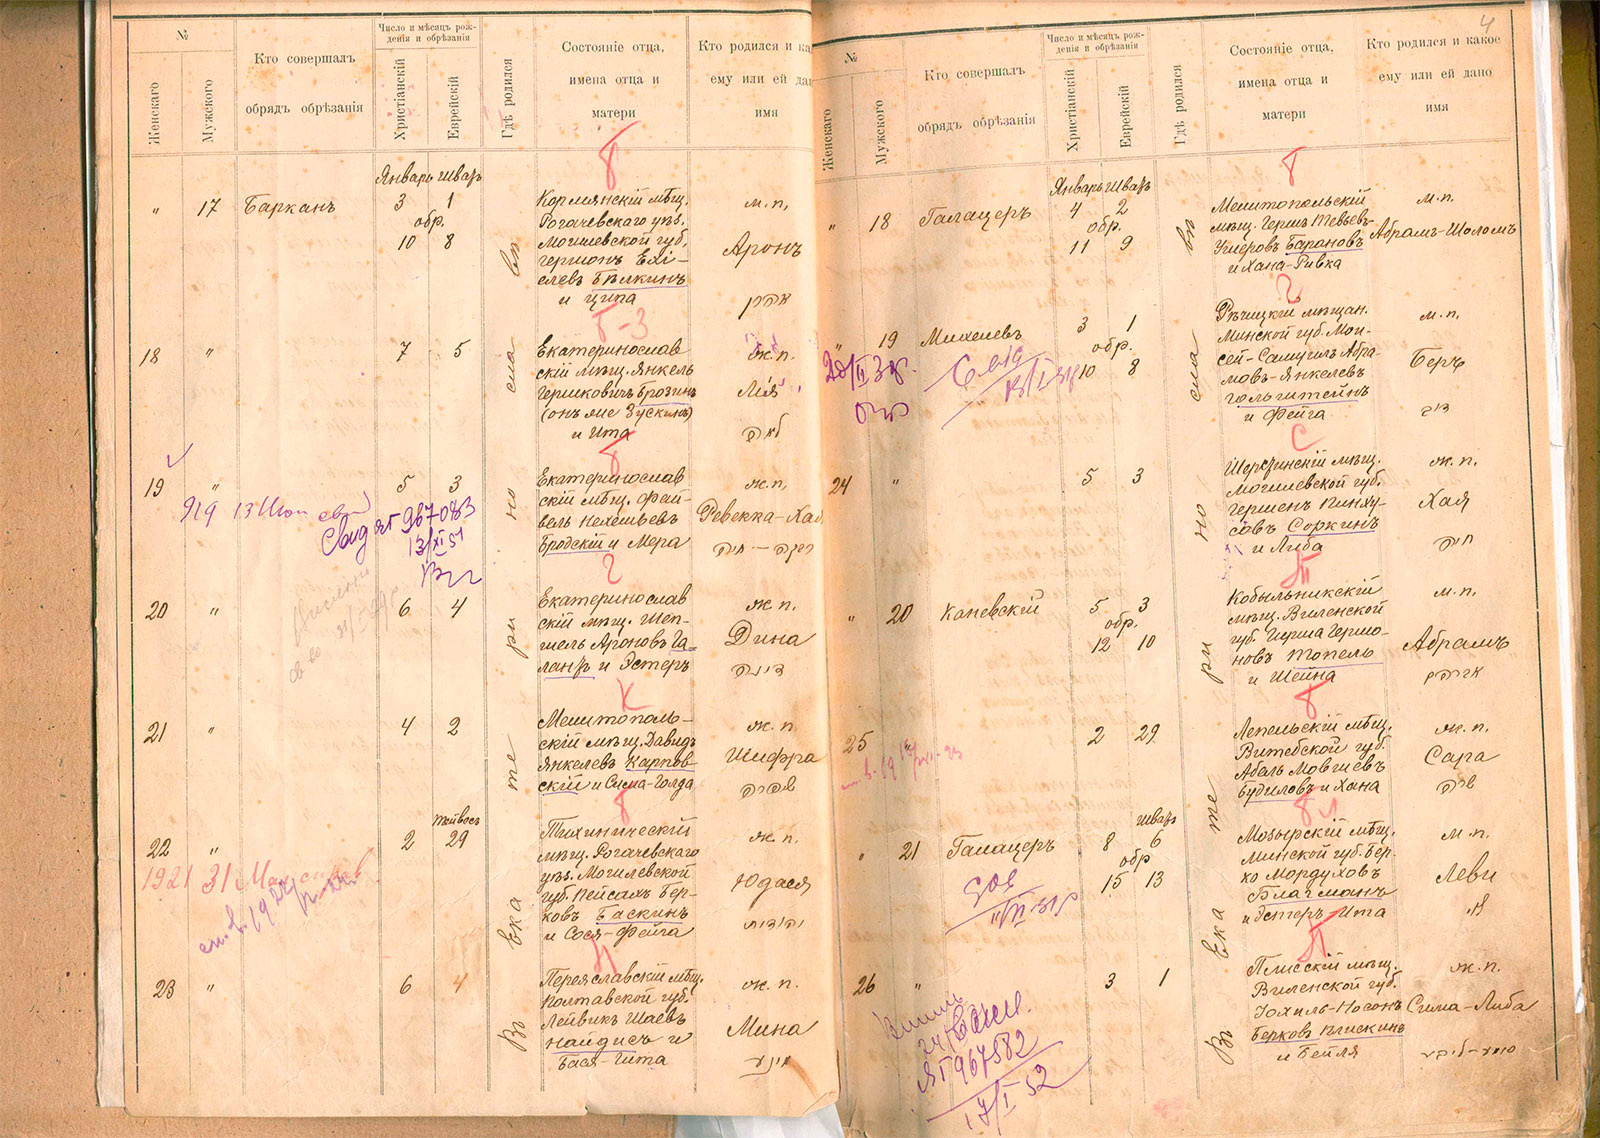 №
Женскаго
Мужского
Кто совершалъ
обрядъ обрѣзанія
Число и мѣсяцъ рож-
денія и обрѣзанія
Христіанскій
Еврейскій
Гдѣ родился
Состояніе отца,
имена отца и
матери
Кто родился и ка
ему или ей дан
имя
Въ Екатеринославѣ
Январь Шватъ
" 17 Барканъ 3 1
обр.
10 8
Б
Кормянскій мѣщ.
Рогачевскаго уѣз.
Могилевской губ.
Гершонъ Ехі-
елевъ Бѣлкинъ
и Ципа
м.п.
Аронъ
אהרן
18 " 7 5
Б-З
Екатеринослав
скій мѣщ. Янкель
Гершковичъ Брозинъ
(онъ же Зускинъ)
и Ита
ж.п.
Лія
לאה
19 " 5 3
919 13 Июн
Свид ЯГ 967083
13/XI 51
Б
Екатеринослав
скій мѣщ. Фай-
вель
Бродскій и Мера
ж.п.
Ревекка-Хая
רבקה - חיה
20 " 6 4
Г
Екатеринослав
скій мѣщ. Шеп-
шель Ароновъ Га-
лантъ и Эстеръ
ж.п.
Дина
דינה
21 " 4 2
К
Мелитополь-
скій мѣщ. Давидъ
Янкелевъ Карпов-
скій и Сима-Голда
ж.п.
Шифра
שפרה
Тейвесъ
22 " 2 29
1921 31
Б
Тихиническій
мѣщ. Рогачевскаго
уѣз. Могилевской
губ. Пейсахъ Бер-
ковъ Баскинъ
и Сося-Фейга
ж.п.
Юдася
יהודית
23 " 6 4
Н
Переяславскій мѣщ.
Полтавской губ.
Лейвикъ Шаевъ
Найдисъ и
Бася-Гита
ж.п.
Мина
מינע
4
№
Женскаго
Мужского
Кто совершалъ
обрядъ обрѣзанія
Число и мѣсяцъ рож-
денія и обрѣзанія
Христіанскій
Еврейскій
Гдѣ родился
Состояніе отца,
имена отца и
матери
Кто родился и какое
ему или ей дано
имя
Въ Екатеринославѣ
Январь Шватъ
" 18 Галацеръ 4 2
обр.
11 9
Б
Мелитопольскій
мѣщ. Гершъ Тевьев-
Ушеровъ Барановъ
и Хана-Ривка
м.п.
Абрамъ-Шоломъ
" 19 Михелевъ 3 1
обр.
10 8
Г
Рѣчицкій мѣщан.
Минской губ. Мой-
сей-Самуилъ Абра-
мовъ-Янкелевъ
Гольштейнъ
и Фейга
м.п.
Беръ
בער
24 " 5 3
С
мѣщ.
Могилевской губ.
Гершенъ Пинху-
совъ Соркинъ
и Либа
ж.п.
Хая
חיה
" 20 Каневскій 5 3
обр.
12 10
Т
Кобыльникскій
мѣщ. Виленской
губ. Гирша Гершо-
новъ Топель
и Шейна
м.п.
Абрамъ
אברהם
25 " 2 29
Б
Лепельскій мѣщ.
Витебской губ.
Абель Мовшевъ
Будиловъ и Хана
ж.п.
Сара
שרה
Шватъ
" 21 Галацеръ 8 6
обр
15 13
Бл
Мозырскій мѣщ.
Минской губ. Бер-
ко Мордуховъ
Благманъ
и Эстеръ-Ита
м.п.
Леви
לוי
26 " 3 1
ЯГ 967582
17/I 52
П
Плисскій мѣщ.
Виленской губ.
Іохиль-Носонъ
Берковъ Плискинъ
и Бейля
ж.п.
Сима-Либа
סימע-ליבע